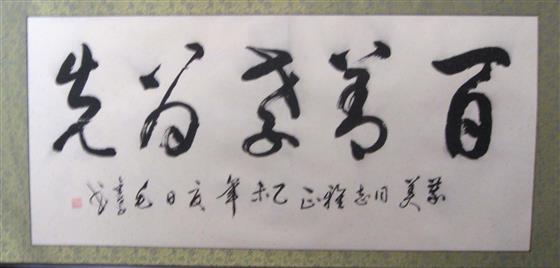 百善孝为先
紫美同志雅正乙未年夏日毛